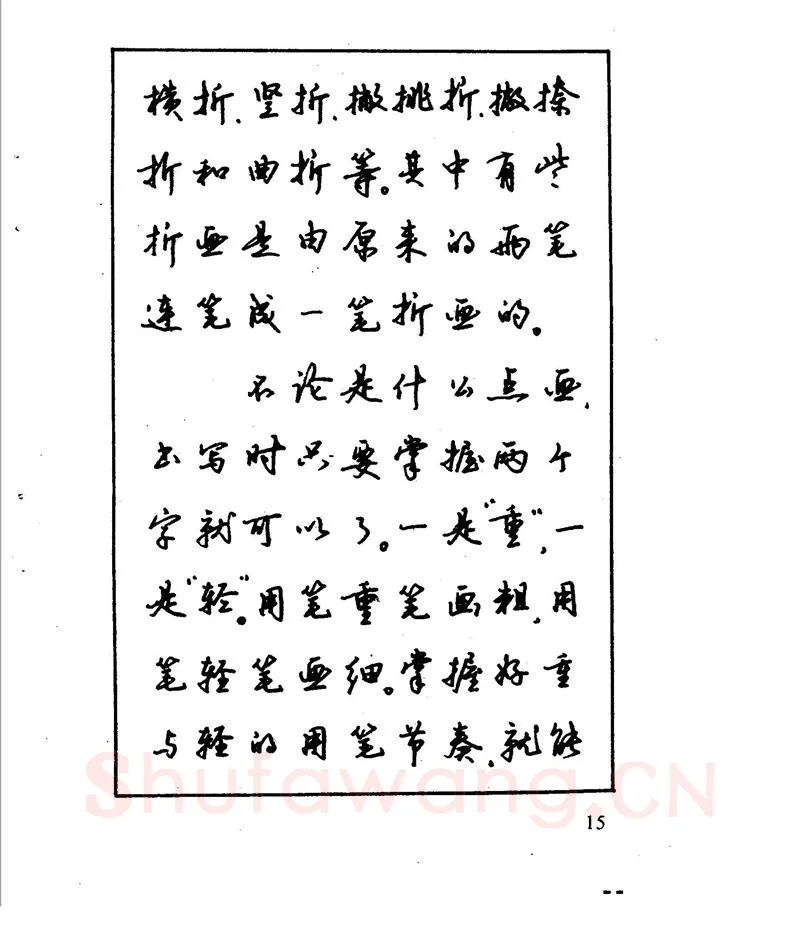 横折、竖折、撇挑折、撇捺
折和曲折等。其中有些
折画是由原来的两笔
连笔成一笔折画的。
不论是什么点画，
书写时只要掌握两个
字就可以了。一是“重”，一
是“轻”。用笔重笔画粗，用
笔轻笔画细。掌握好重
与轻的用笔节奏，就能
Shufawang.CN
15